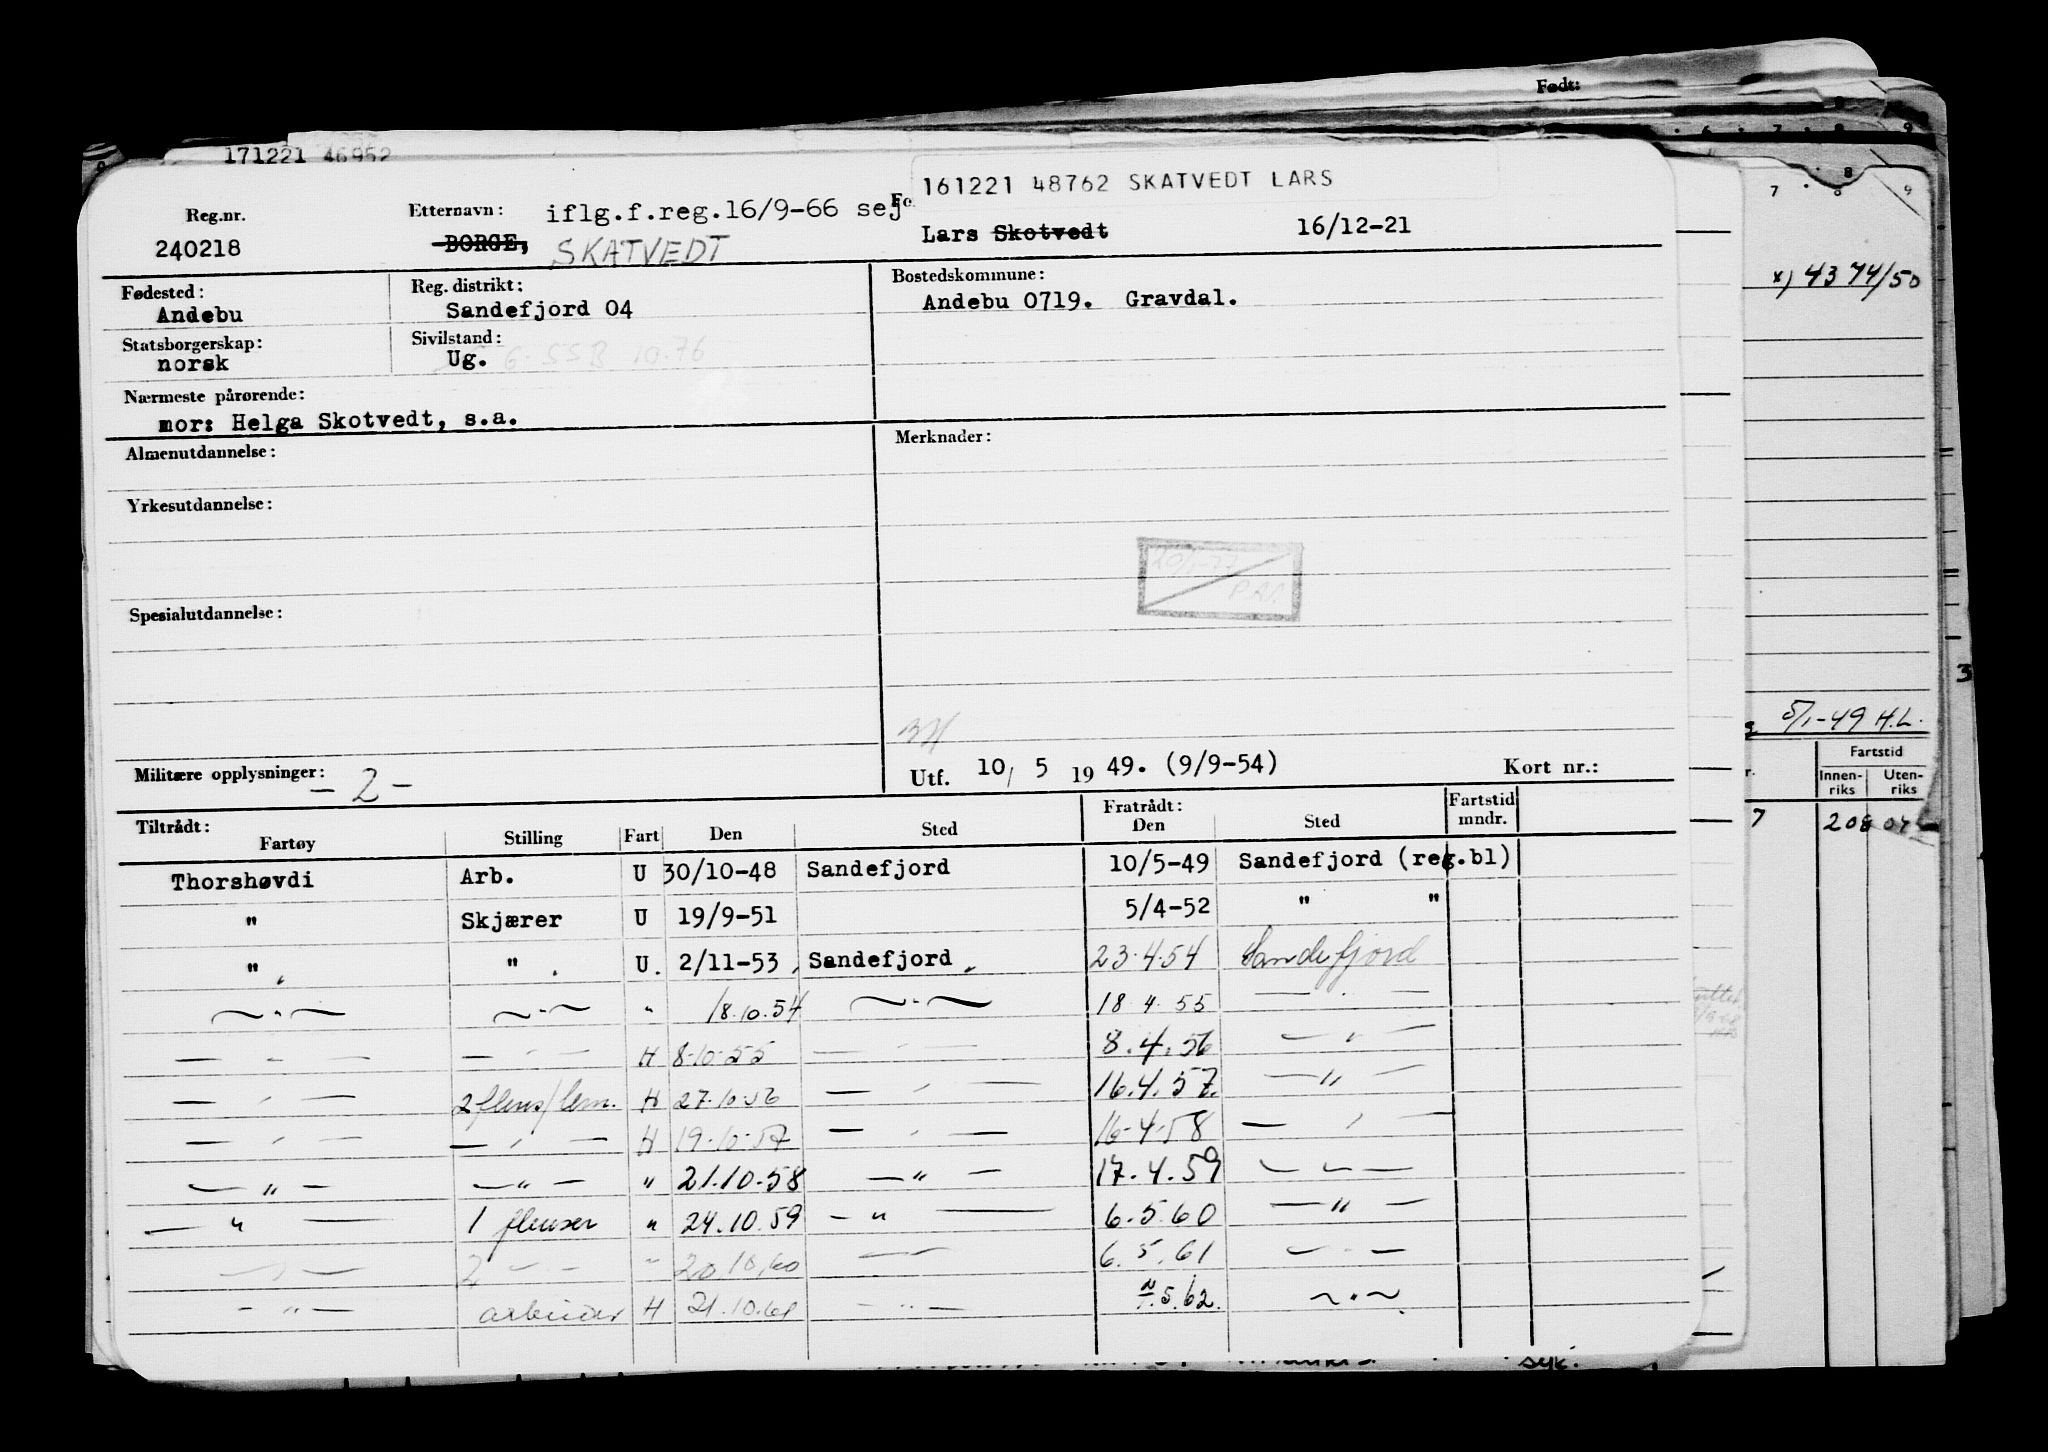 Født:
6 7 8 9
8
7 8 9
171221 46952
161221 48762 SKATVEDT LARS
Reg.nr. Etternavn: iflg.f.reg.16/9-66 sej Fo.
240218 BORGE, SKATVEDT Lars Skotvedt 16/12-21
Fødested: Reg. distrikt: Bostedskommune:
Andebu Sandefjord 04 Andebu 0719. Gravdal.
x) 4374/50
Statsborgerskap: Sivilstand:
norsk Ug. 6.55B 10.76
Nærmeste pårørende:
mor: Helga Skotvedt, s.a.
Almenutdannelse: Merknader:
Yrkesutdannelse:
20/1-77
Spesialutdannelse:
3
5/1-49 H.L.
Militære opplysninger: -2- Utf. 10/ 5 19 49. (9/9-54) Kort nr.:
Fartstid
Innenriks Utenriks
7 208
Tiltrådt: Fratrådt: Fartstid mndr.
Fartøy Stilling Fart Den Sted Den Sted
Thorshøvdi Arb. U 30/10-48 Sandefjord 10/5-49 Sandefjord (reg.bl)
" Skjærer U 19/9-51 5/4-52 " "
" " U. 2/11-53 Sandefjord 23.4.54 Sandefjord
—"— —"— " 18.10.54 —"— 18.4.55 —"—
—"— —"— H 8-10-55 —"— 8.4.56 —"—
—"— 2 flens/lem. H 27.10.56 —"— 16.4.57. —"—
—"— —"— H 19.10.57 —"— 16-4-58 —"—
—"— —"— " 21.10.58 —"— 17.4.59 —"—
—"— 1 flenser " 24.10.59 —"— 6.5.60 —"—
—"— 2 —"— " 20.10.60 —"— 6.5.61 —"—
—"— arbeider H 21.10.61 —"— .5.62. —"—
syk.